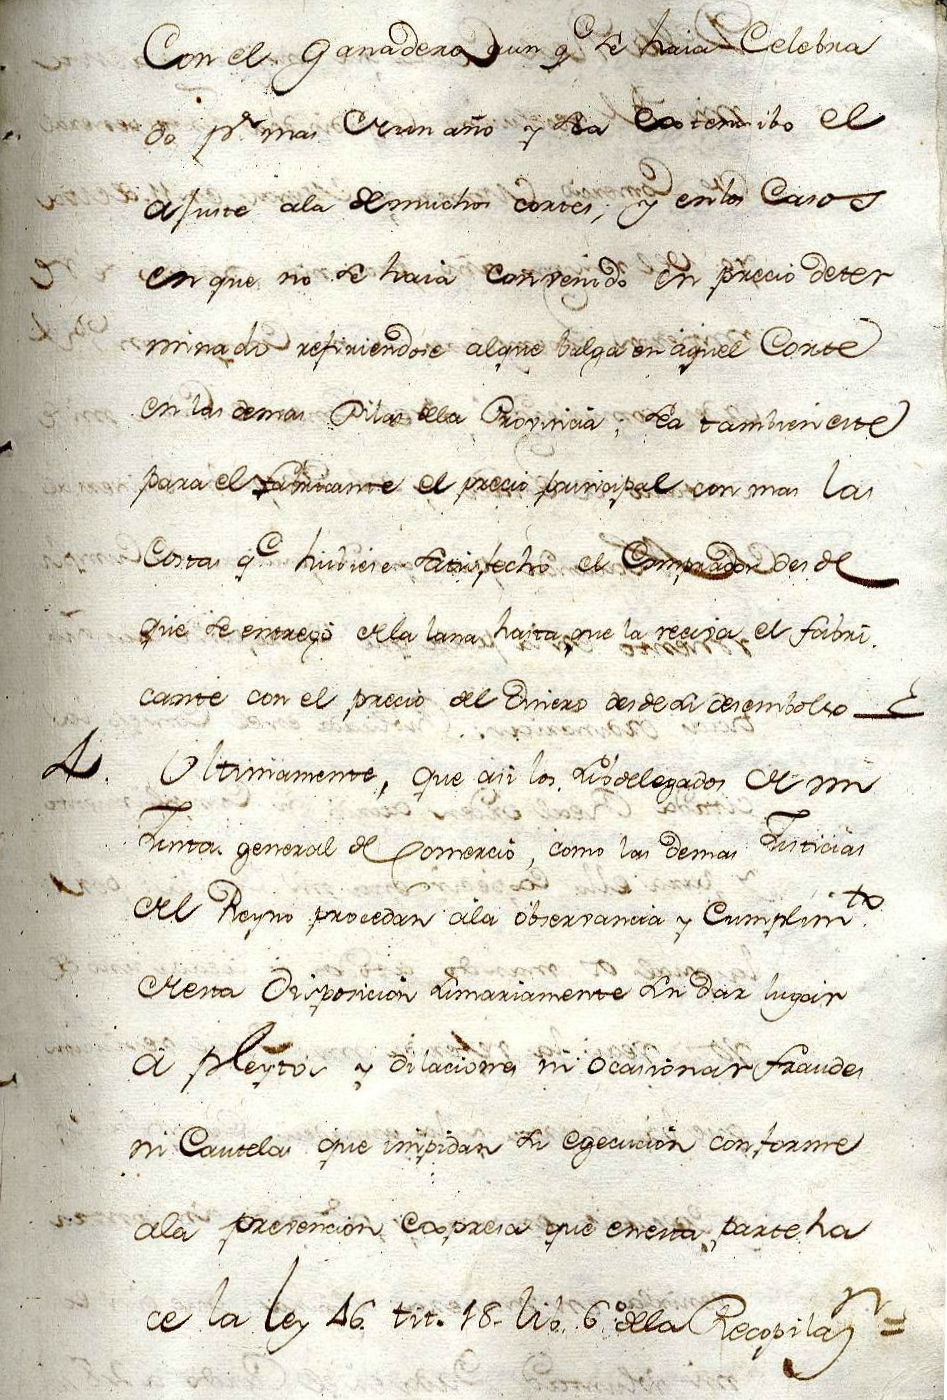 Con el Ganadero aun q.e se haia Celebra
do p.r mas de un año y sea extensibo el
ajuste ala de muchos cortes; y en los Casos
en que no se haia convenido en precio deter
minado refiriendose alque balga en aquel Corte
en las demas Pilas dela Provincia; sea tambien este
para el fabricante el precio principal con mas las
Costas q.e hubiese satisfecho el Comprador desde
que se entregó de la lana hasta que la reciva el fabri.
cante con el precio del Dinero desde su desembolso
4. Ultimamente, que asi los subdelegados de mi
Junta general de Comercio, como las demas Justicias
del Reyno procedan ala observancia y Cumplim.to
de esta Disposicion sumariamente sin dar lugar
á pleytos y dilaciones ni ocasionar fraudes
ni Cautelas que impidan su egecucion conforme
ala prevencion expresa que en esta parte ha
ce la ley 46 tit. 18. lib. 6.º dela Recopilaz.n =